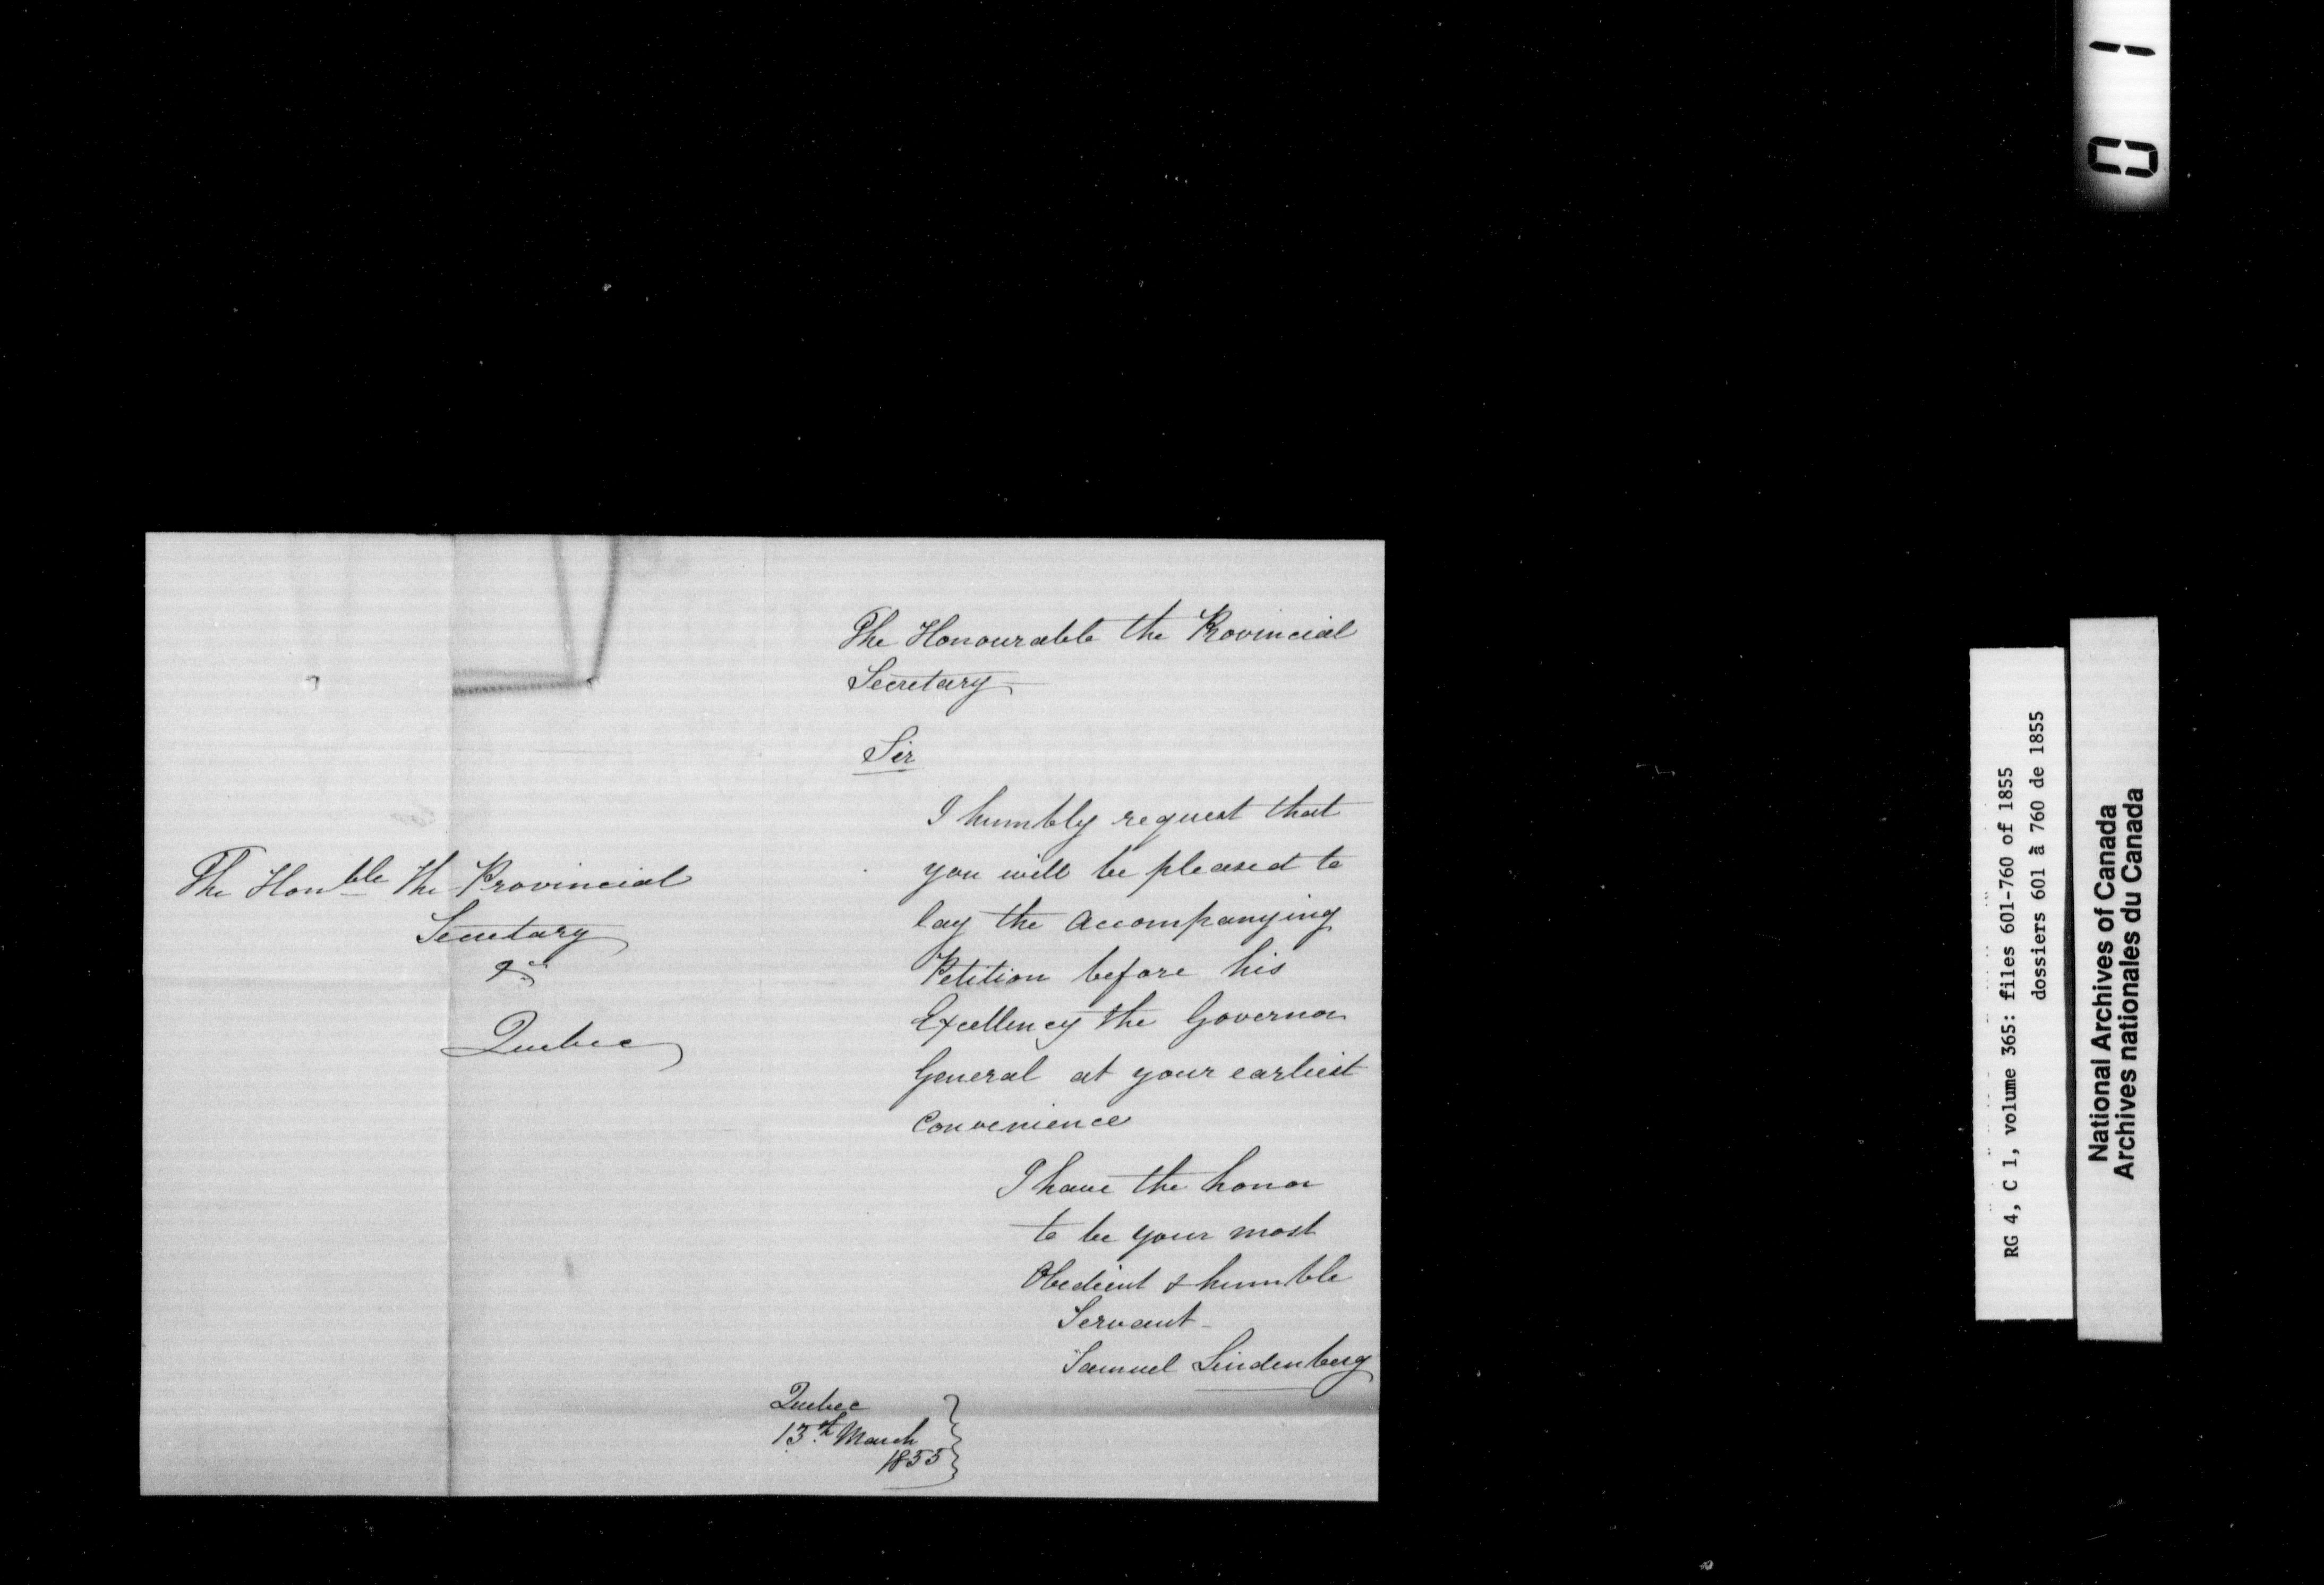 The Honble the Provincial
Secretary
&c
Quebec
The Honourable the Provincial
Secretary
Sir
I humbly request that
you will be pleased to
lay the accompanying
Petition before his
Excellency the Governor
General at your earliest
Convenience
I have the honor
to be your most
Obedient & humble
Servant
Samuel Lindenberg
Quebec
13th March
1855
01
RG 4, C 1, volume 365: files 601-760 of 1855
dossiers 601 à 760 de 1855
National Archives of Canada
Archives nationales du Canada